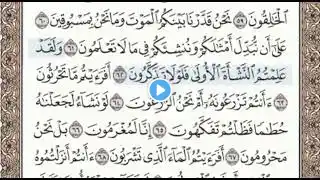 ٱلْخَٰلِقُونَ ٥٩ نَحْنُ قَدَّرْنَا بَيْنَكُمُ ٱلْمَوْتَ وَمَا نَحْنُ بِمَسْبُوقِينَ ٦٠
عَلَىٰٓ أَن نُّبَدِّلَ أَمْثَٰلَكُمْ وَنُنشِئَكُمْ فِى مَا لَا تَعْلَمُونَ ٦١ وَلَقَدْ
عَلِمْتُمُ ٱلنَّشْأَةَ ٱلْأُولَىٰ فَلَوْلَا تَذَكَّرُونَ ٦٢ أَفَرَءَيْتُم مَّا تَحْرُثُونَ
٦٣ ءَأَنتُمْ تَزْرَعُونَهُۥٓ أَمْ نَحْنُ ٱلزَّٰرِعُونَ ٦٤ لَوْ نَشَآءُ لَجَعَلْنَٰهُ
حُطَٰمًا فَظَلْتُمْ تَفَكَّهُونَ ٦٥ إِنَّا لَمُغْرَمُونَ ٦٦ بَلْ نَحْنُ
مَحْرُومُونَ ٦٧ أَفَرَءَيْتُمُ ٱلْمَآءَ ٱلَّذِى تَشْرَبُونَ ٦٨ ءَأَنتُمْ أَنزَلْتُمُوهُ